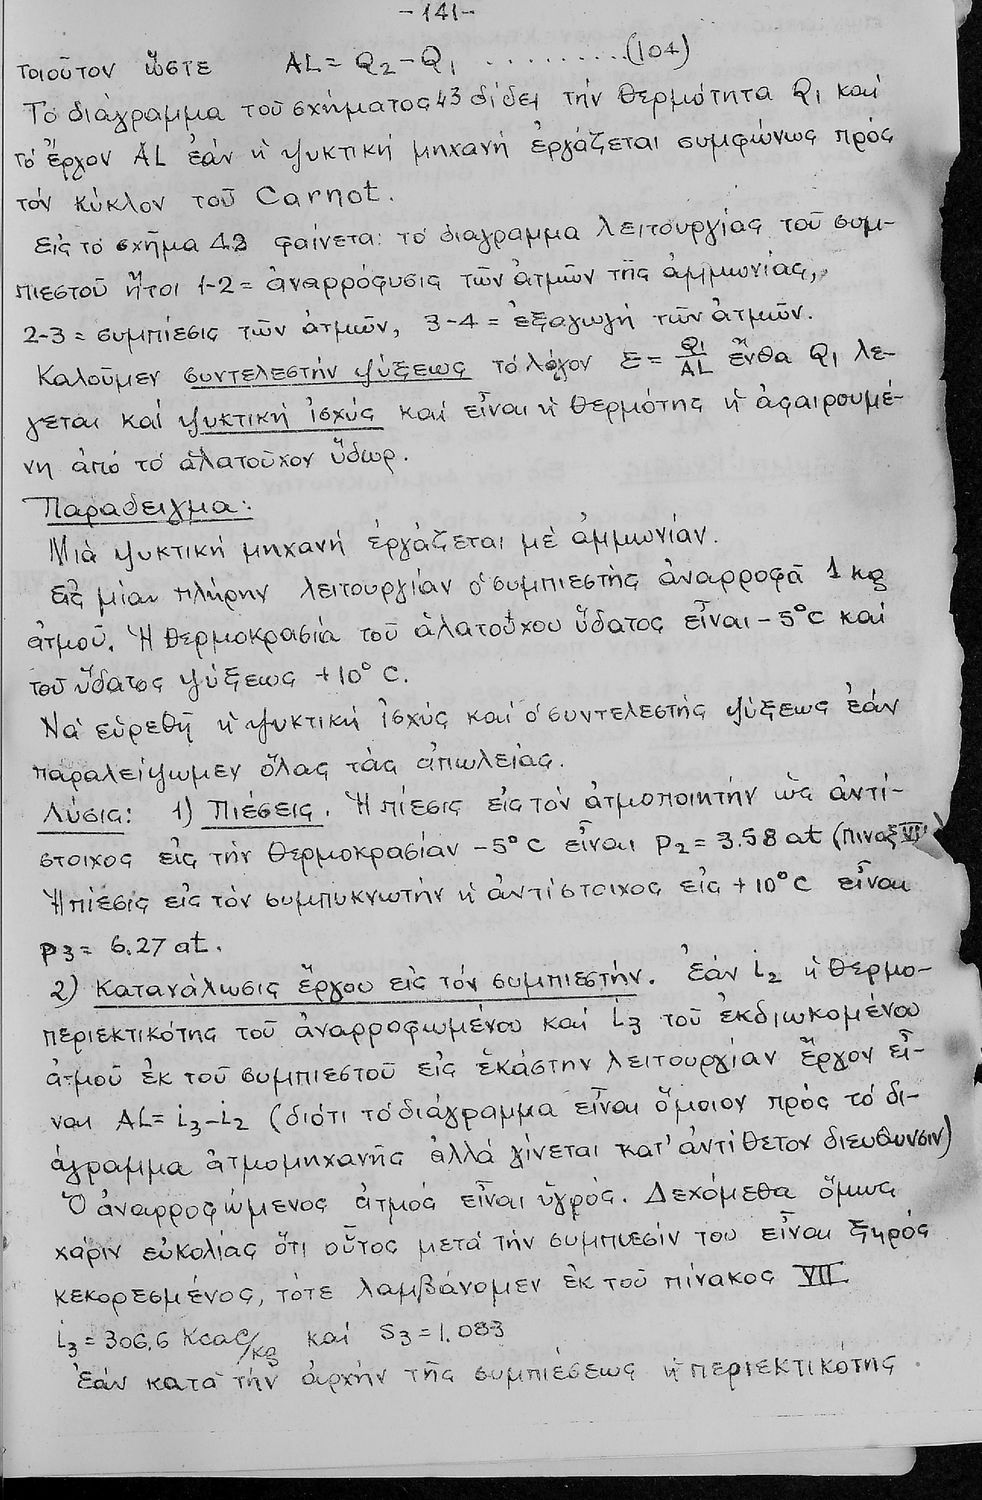 -141-
τοιοῦτον ὥστε AL = Q2 - Q1 ..........(104)
Τό διάγραμμα τοῦ σχήματος 43 δίδει τήν θερμότητα Q1 καί
τό ἔργον AL ἐάν ἡ ψυκτική μηχανή ἐργάζεται συμφώνως πρός
τόν κύκλον τοῦ Carnot.
Εἰς τό σχῆμα 42 φαίνεται τό διάγραμμα λειτουργίας τοῦ συμ-
πιεστοῦ ἤτοι 1-2 = ἀναρρόφησις τῶν ἀτμῶν τῆς ἀμμωνίας,
2-3 = συμπίεσις τῶν ἀτμῶν, 3-4 = ἐξαγωγή τῶν ἀτμῶν.
Καλοῦμεν συντελεστήν ψύξεως τό λόγον ε = Q1/AL ἔνθα Q1 λέ-
γεται καί ψυκτική ἰσχύς καί εἶναι ἡ θερμότης ἡ ἀφαιρουμέ-
νη ἀπό τό ἁλατοῦχον ὕδωρ.
Παράδειγμα:
Μιά ψυκτική μηχανή ἐργάζεται μέ ἀμμωνίαν.
Εἰς μίαν πλήρην λειτουργίαν ὁ συμπιεστής ἀναρροφᾶ 1 kg
ἀτμοῦ. Ἡ θερμοκρασία τοῦ ἁλατούχου ὕδατος εἶναι -5°C καί
τοῦ ὕδατος ψύξεως +10° C.
Νά εὑρεθῇ ἡ ψυκτική ἰσχύς καί ὁ συντελεστής ψύξεως ἐάν
παραλείψωμεν ὅλας τάς ἀπωλείας.
Λύσις: 1) Πιέσεις. Ἡ πίεσις εἰς τόν ἀτμοποιητήν ὡς ἀντί-
στοιχος εἰς τήν θερμοκρασίαν -5°C εἶναι p2 = 3.58 at (Πιναξ VI)
Ἡ πίεσις εἰς τόν συμπυκνωτήν ἡ ἀντίστοιχος εἰς +10°C εἶναι
p3 = 6.27 at.
2) Κατανάλωσις ἔργου εἰς τόν συμπιεστήν. Ἐάν i2 ἡ θερμο-
περιεκτικότης τοῦ ἀναρροφωμένου καί i3 τοῦ ἐκδιωκομένου
ἀτμοῦ ἐκ τοῦ συμπιεστοῦ εἰς ἑκάστην λειτουργίαν ἔργον εἶ-
ναι AL = i3-i2 (διότι τό διάγραμμα εἶναι ὅμοιον πρός τό δι-
άγραμμα ἀτμομηχανῆς ἀλλά γίνεται κατ' ἀντίθετον διεύθυνσιν)
Ὁ ἀναρροφώμενος ἀτμός εἶναι ὑγρός. Δεχόμεθα ὅμως
χάριν εὐκολίας ὅτι οὗτος μετά τήν συμπιεσίν του εἶναι ξηρός
κεκορεσμένος, τότε λαμβάνομεν ἐκ τοῦ πίνακος VII
i3 = 306.6 Kcal/kg καί S3 = 1.083
Ἐάν κατά τήν ἀρχήν τῆς συμπιέσεως ἡ περιεκτικότης